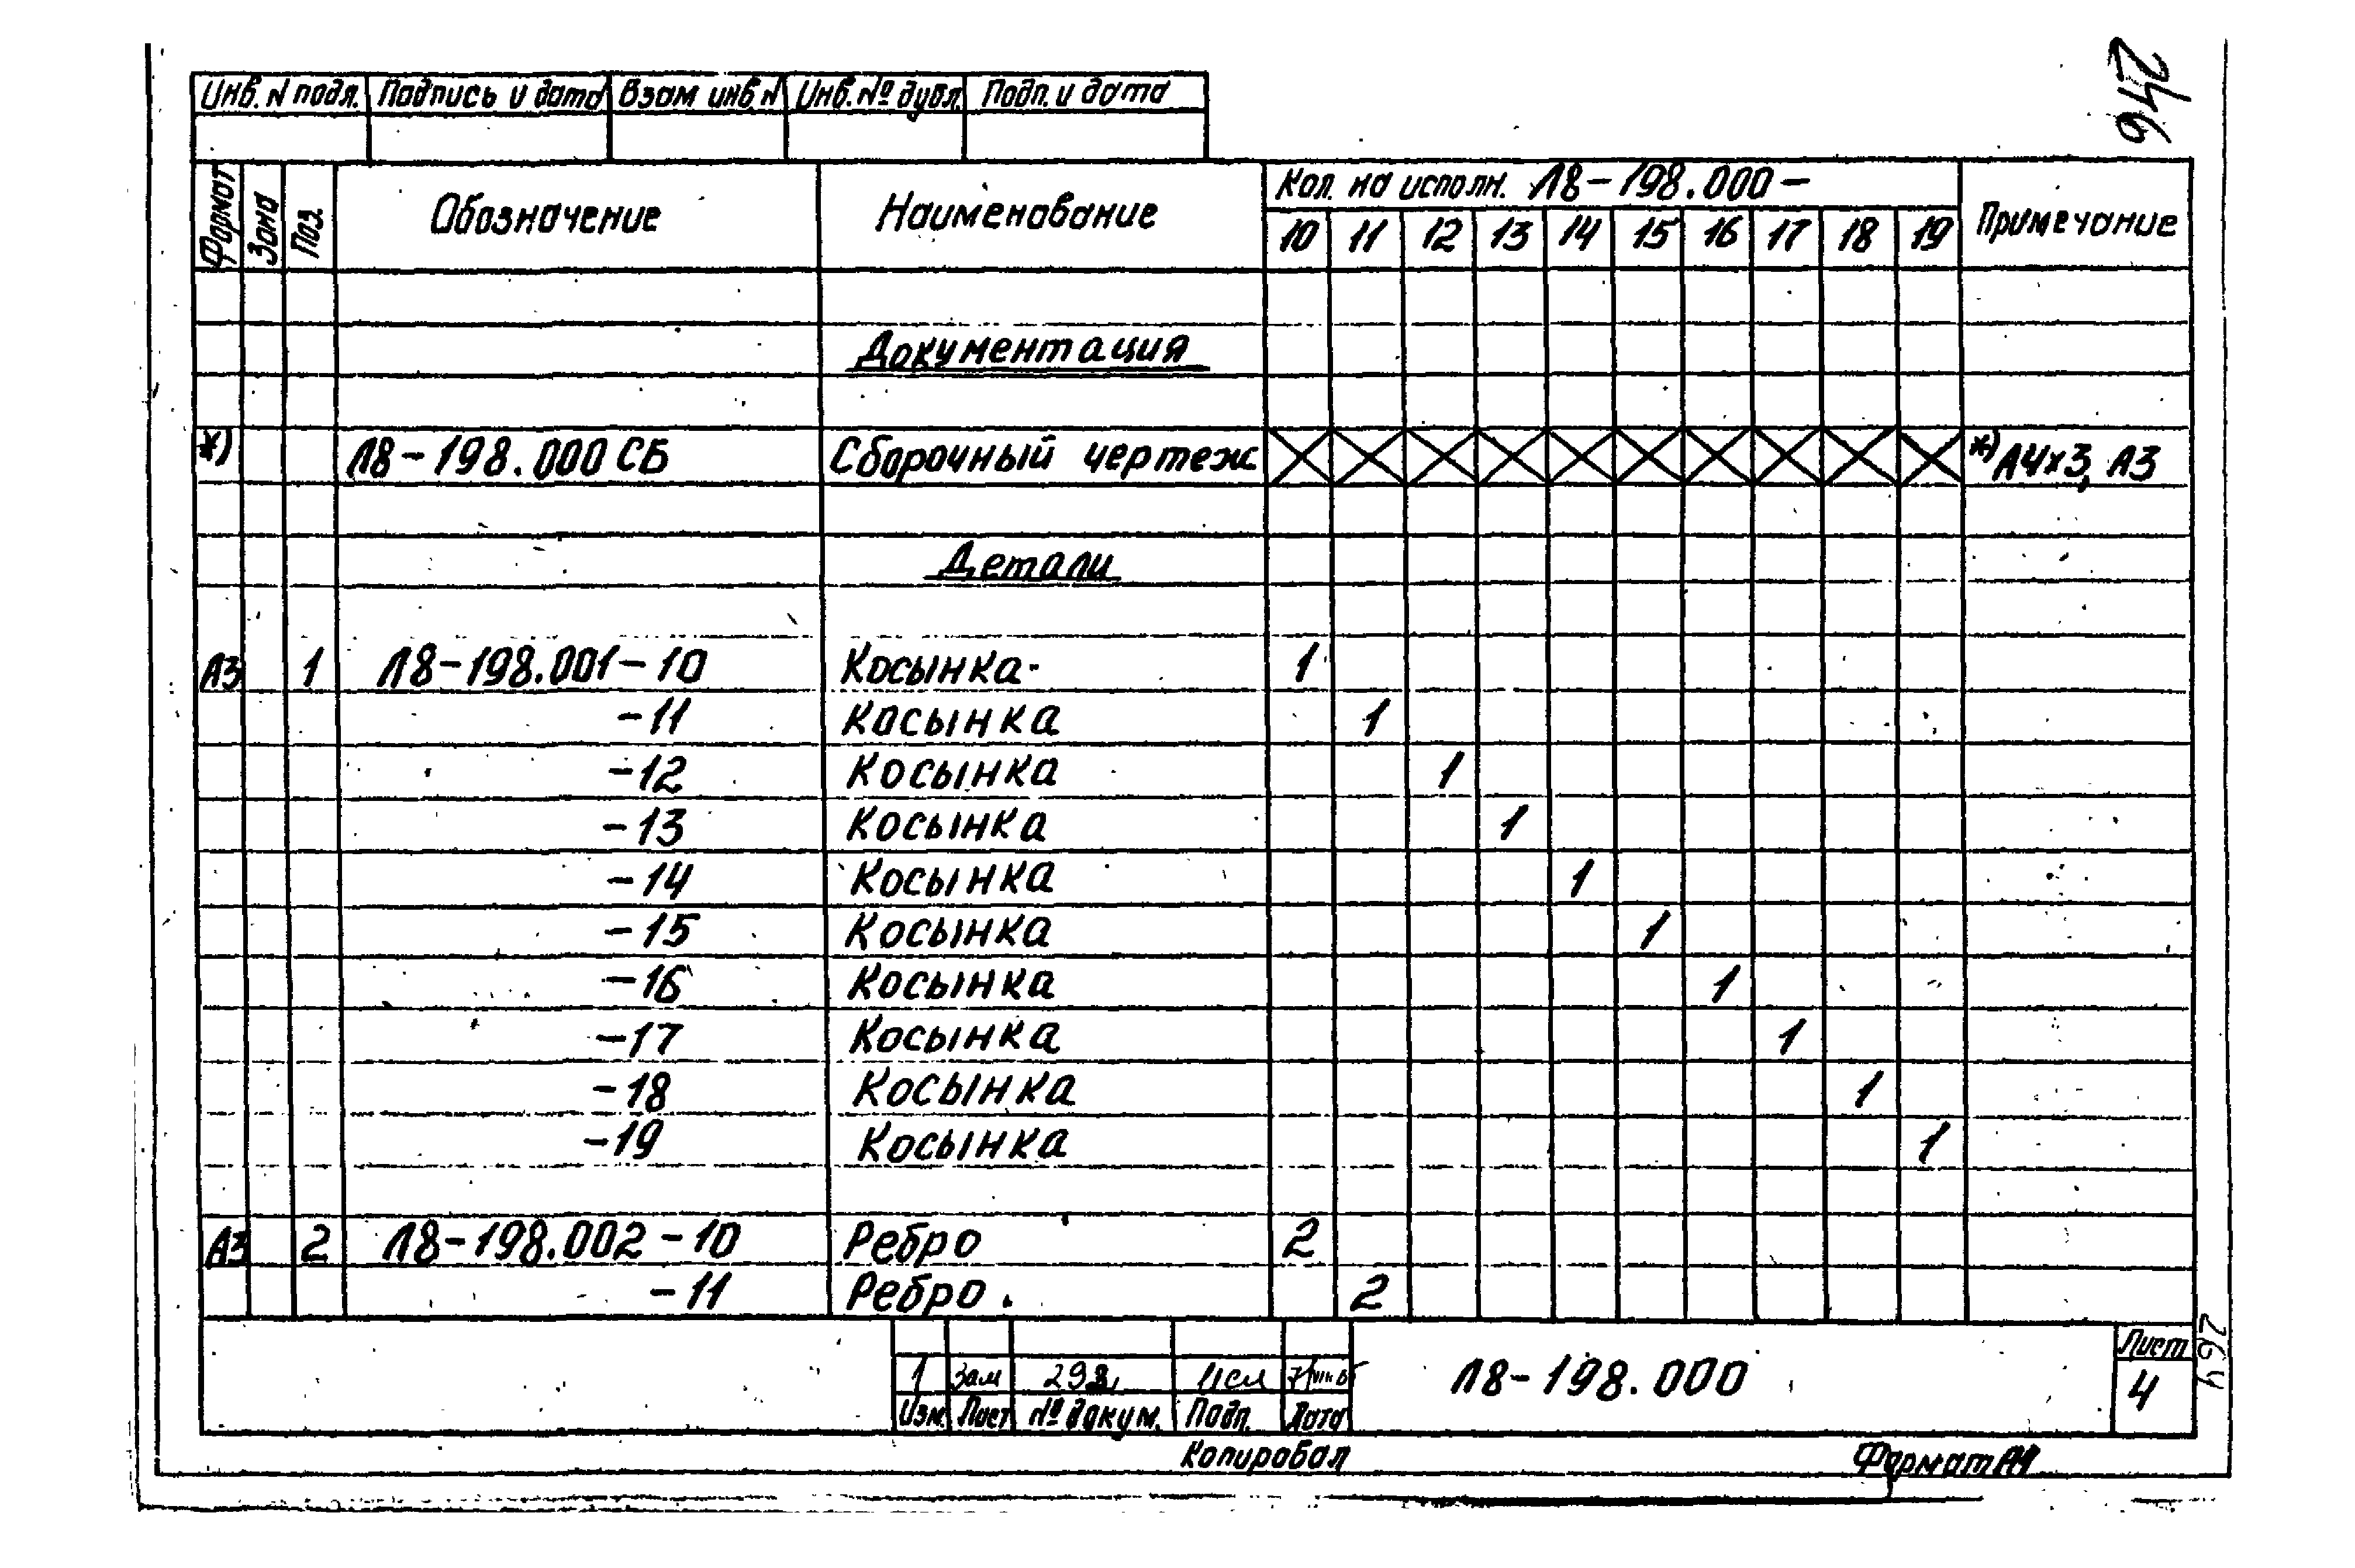 246
Инв. N подл. Подпись и дата Взам инв. N Инв. № дубл. Подп. и дата
Формат Зона Поз. Обозначение Наименование Кол. на исполн. Л8-198.000- Примечание
10 11 12 13 14 15 16 17 18 19
Документация
*) Л8-198.000 СБ Сборочный чертеж *) А4х3, А3
Детали
А3 1 Л8-198.001-10 Косынка 1
-11 Косынка 1
-12 Косынка 1
-13 Косынка 1
-14 Косынка 1
-15 Косынка 1
-16 Косынка 1
-17 Косынка 1
-18 Косынка 1
-19 Косынка 1
А3 2 Л8-198.002-10 Ребро 2
-11 Ребро 2
1 Зам
Изм. Лист № докум. Подп. Дата
Л8-198.000
Лист
4
Копировал Формат
264